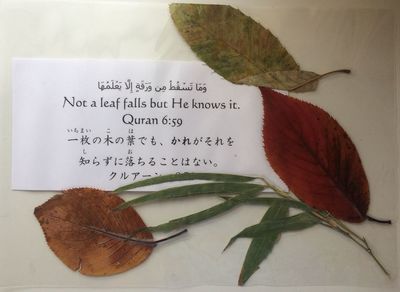 وَمَا تَسْقُطُ مِن وَرَقَةٍ إِلَّا يَعْلَمُهَا
Not a leaf falls but He knows it.
Quran 6:59
一枚の木の葉でも、かれがそれを
知らずに落ちることはない。
クルアーン